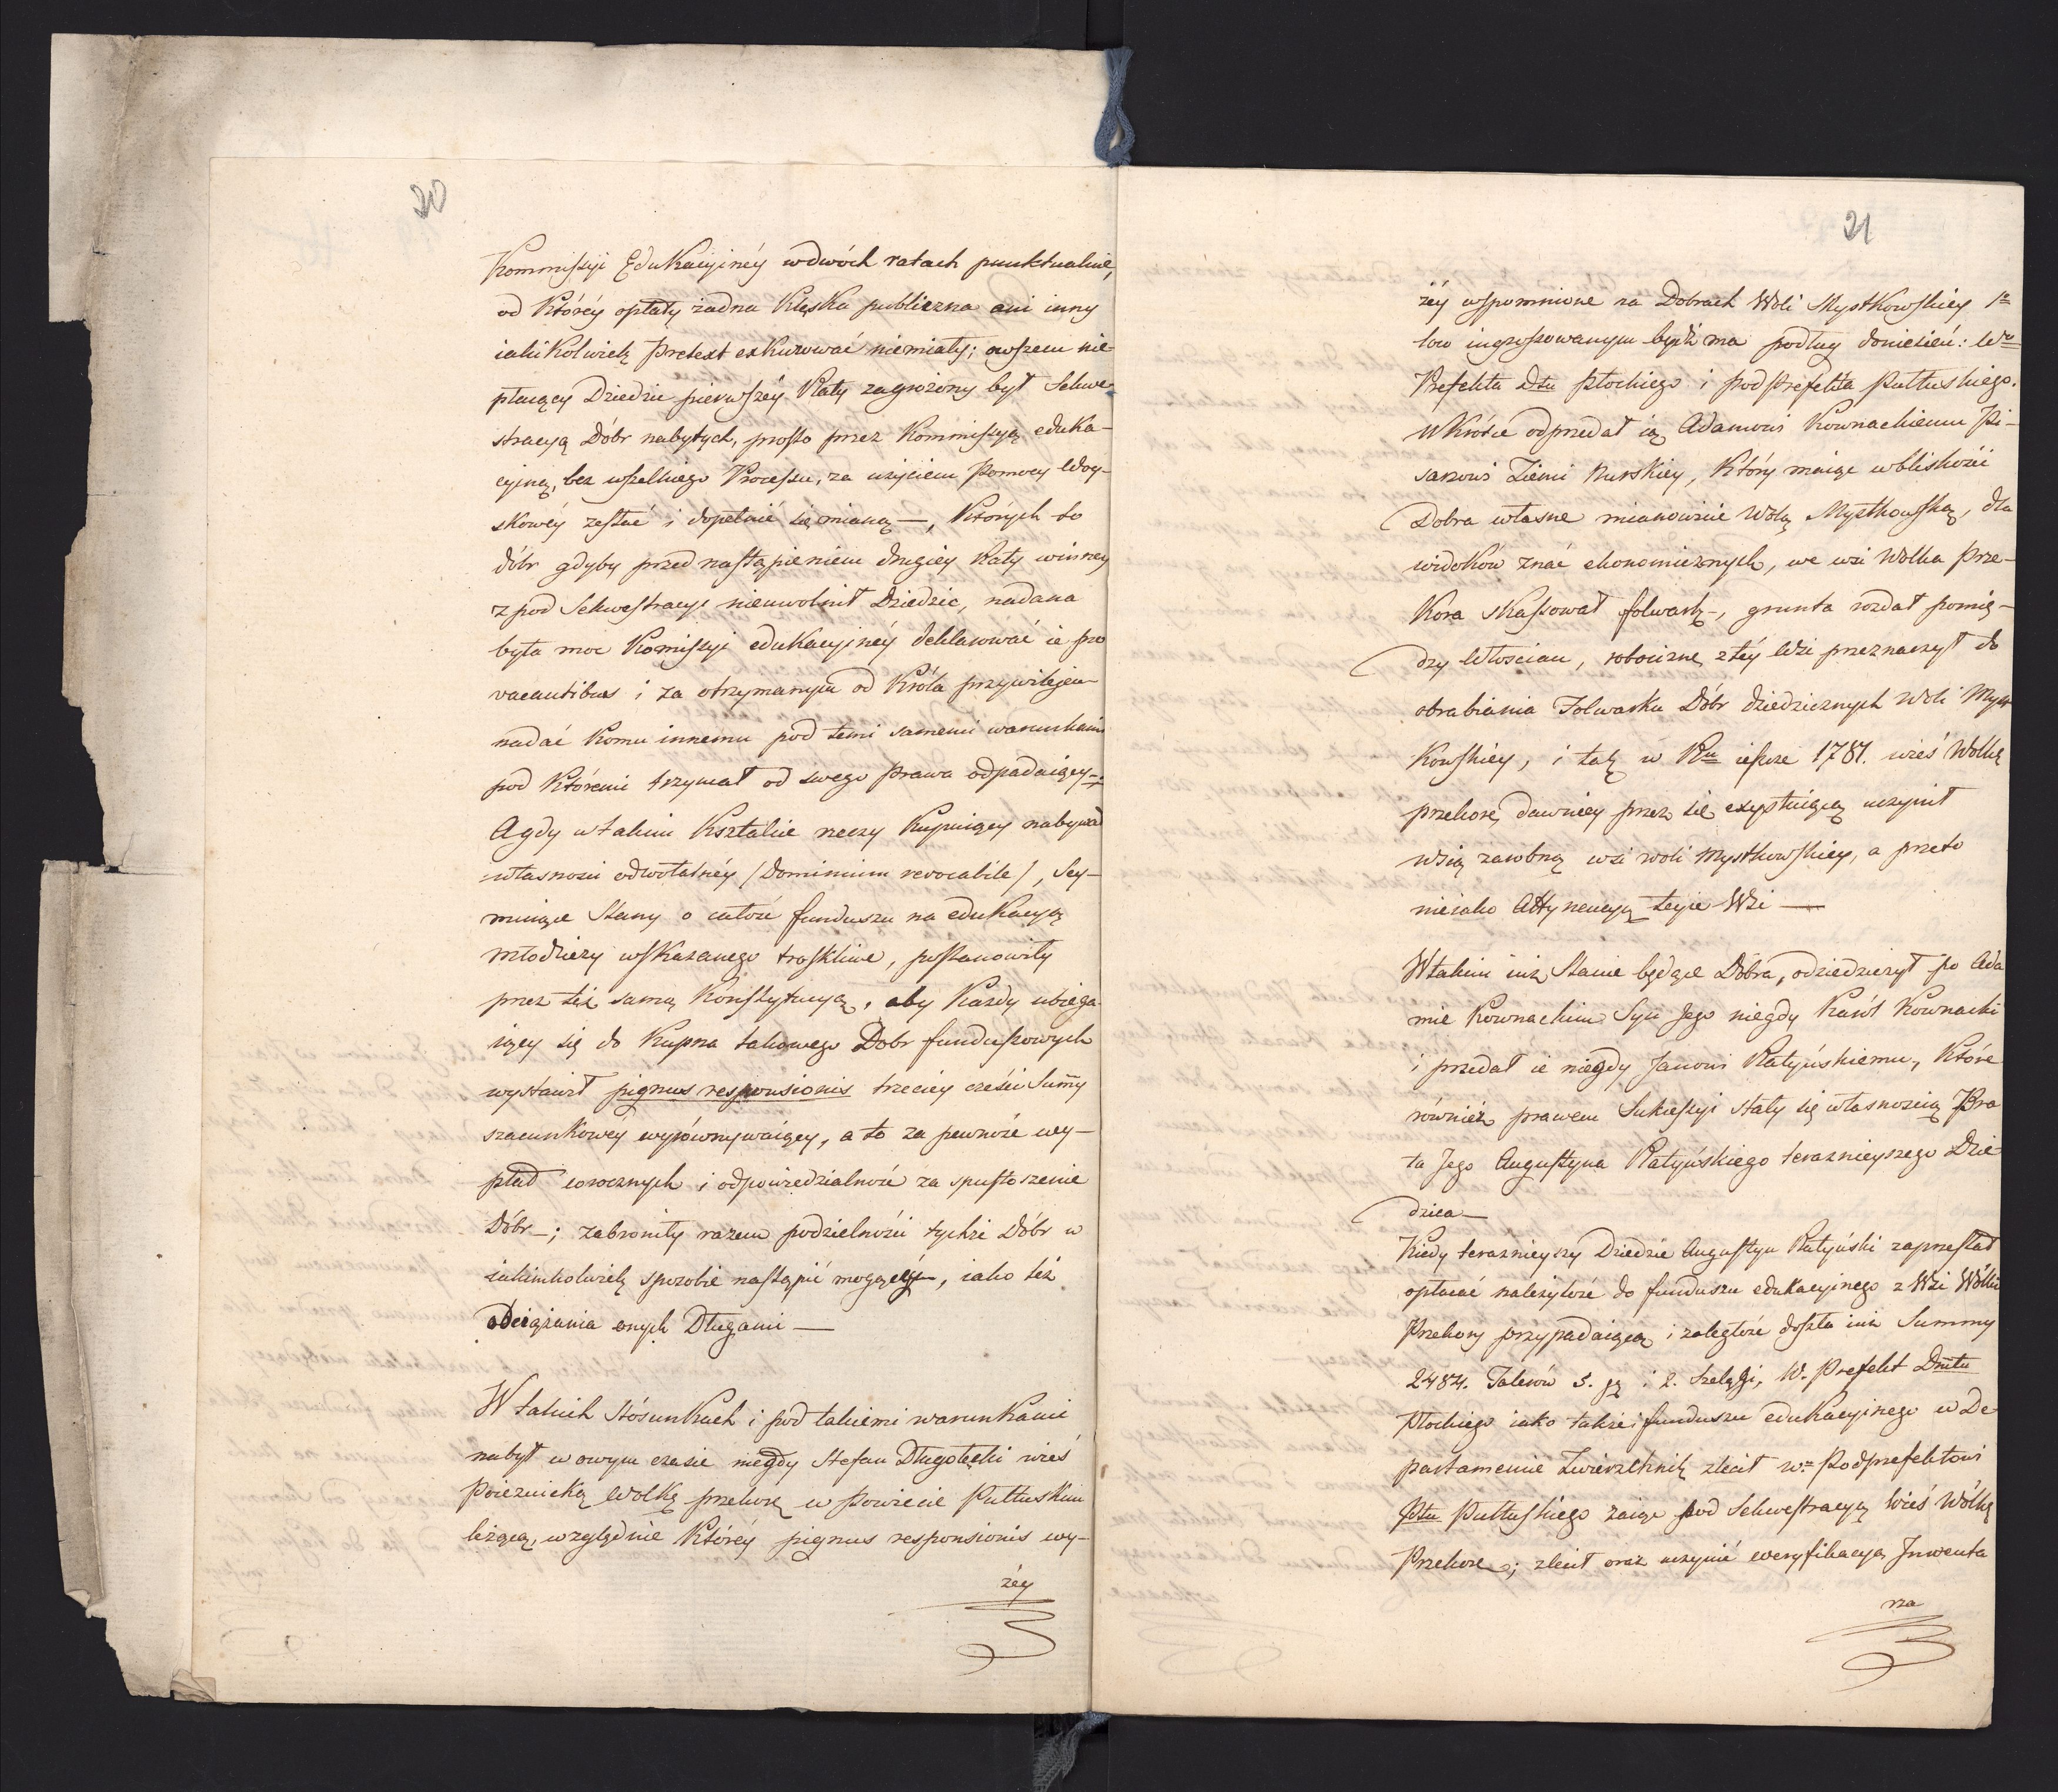 20
Kommissyi Edukacyinéy w dwóch ratach punktualnie,
od któréy opłaty żadna klęska publiczna ani inny
iakikolwiek pretext exkuzować niemiały; owszem nie-
płacący Dziedzic pierwszéy Raty zagrożony był Sekwe-
stracyą Dóbr nabytych, prosto przez Kommissyą eduka-
cyiną, bez wszelkiego Processu, za użyciem Pomocy Woy-
skowéy zesłać i dopełnić się mianą —, których to
dóbr gdyby przed nastąpieniem drugiey Raty winney
z pod Sekwestracyi nieuwolnił Dziedzic, nadana
była moc Komissyi edukacyinéy deklarować ie pro
vacantibus i za otrzymanym od Króla przywilejem
nadać komu innemu pod temi samemi warunkami
pod któremi trzymał od swego Prawa odpadaiący —;
A gdy w takim kształcie rzeczy Kupuiący nabywał
własności odwołalnéy /Dominium revocabile/, Sey-
muiące Stany o całość funduszu na edukacyą
młodzieży wskazanego troskliwe, postanowiły
przez też samą Konstytucyą, aby każdy ubiega-
iący się do kupna takowego Dobr funduszowych
wystawił pignus responsionis trzeciey części Summy
szacunkowéy wyrównywaiący, a to za pewność wy-
płat corocznych i odpowiedzialność za spustoszenie
Dóbr —; zabroniły razem podzielności tychże Dóbr w
iakimkolwiek sposobie nastąpić mogącéy, iako też
obciążania onych Długami —
W takich stósunkach i pod takiemi warunkami
nabył w owym czasie niegdy Stefan Długołęcki wieś
Poiezuicką Wolkę przekorę w Powiecie Pułtuskim
leżącą, względnie któréy pignus responsionis wy-
żéy
21
żéy wspomnione na Dobrach Woli Mystkowskiey 1mo
loco ingrossowanym bydź ma podług doniesień: Wo
Prefekta Dtu Płockiego i podPrefekta Pułtuskiego.
Wkrótce odprzedał ią Adamowi Kownackiemu Pi-
sarzowi Ziemi Nurskiey, który maiąc w bliskości
Dobra własne mianowicie Wolą Mystkowską, dla
widoków znać ekonomicznych, we wsi Wolka Prze-
kora skassował folwark —, grunta rozdał pomię-
dzy Włościan, robociznę z téy Wsi przeznaczył do
obrabiania Folwarku Dóbr dziedzicznych Woli Myst
kowskiéy, i tak w Rku ieszcze 1781. wieś Wolkę
przekorę, dawniey przez się exystuiącą uczynił
Wsią zarobną wsi woli Mystkowskiey, a przeto
nieiako Attynencyą teyże Wsi —
W takim iuż Stanie będące Dobra, odziedziczył po Ada
mie Kownackim Syn Jego niegdy Karól Kownacki
i przedał ie niegdy Janowi Ratyńskiemu, które
również prawem Sukcessyi stały się własnością Bra
ta Jego Augustyna Ratyńskiego teraznieyszego Dzie
dzica —
Kiedy teraznieyszy Dziedzic Augustyn Ratyński zaprzestał
opłacać należytość do funduszu edukacyinego z Wsi Wólki
Przekory przypadaiącą i zaległość doszła iuż Summy
2484. Talerów 5. gr i 2. Szelągi, W. Prefekt Dmtu
Płockiego iako także funduszu edukacyinego w De
partamencie Zwierzchnik zlecił Wmu Podprefektowi
Ptu Pułtuskiego zaiąć pod Sekwestracyą Wieś Wólkę
Przekorę; zlecił oraz uczynić weryfikacyą Inwenta
rza